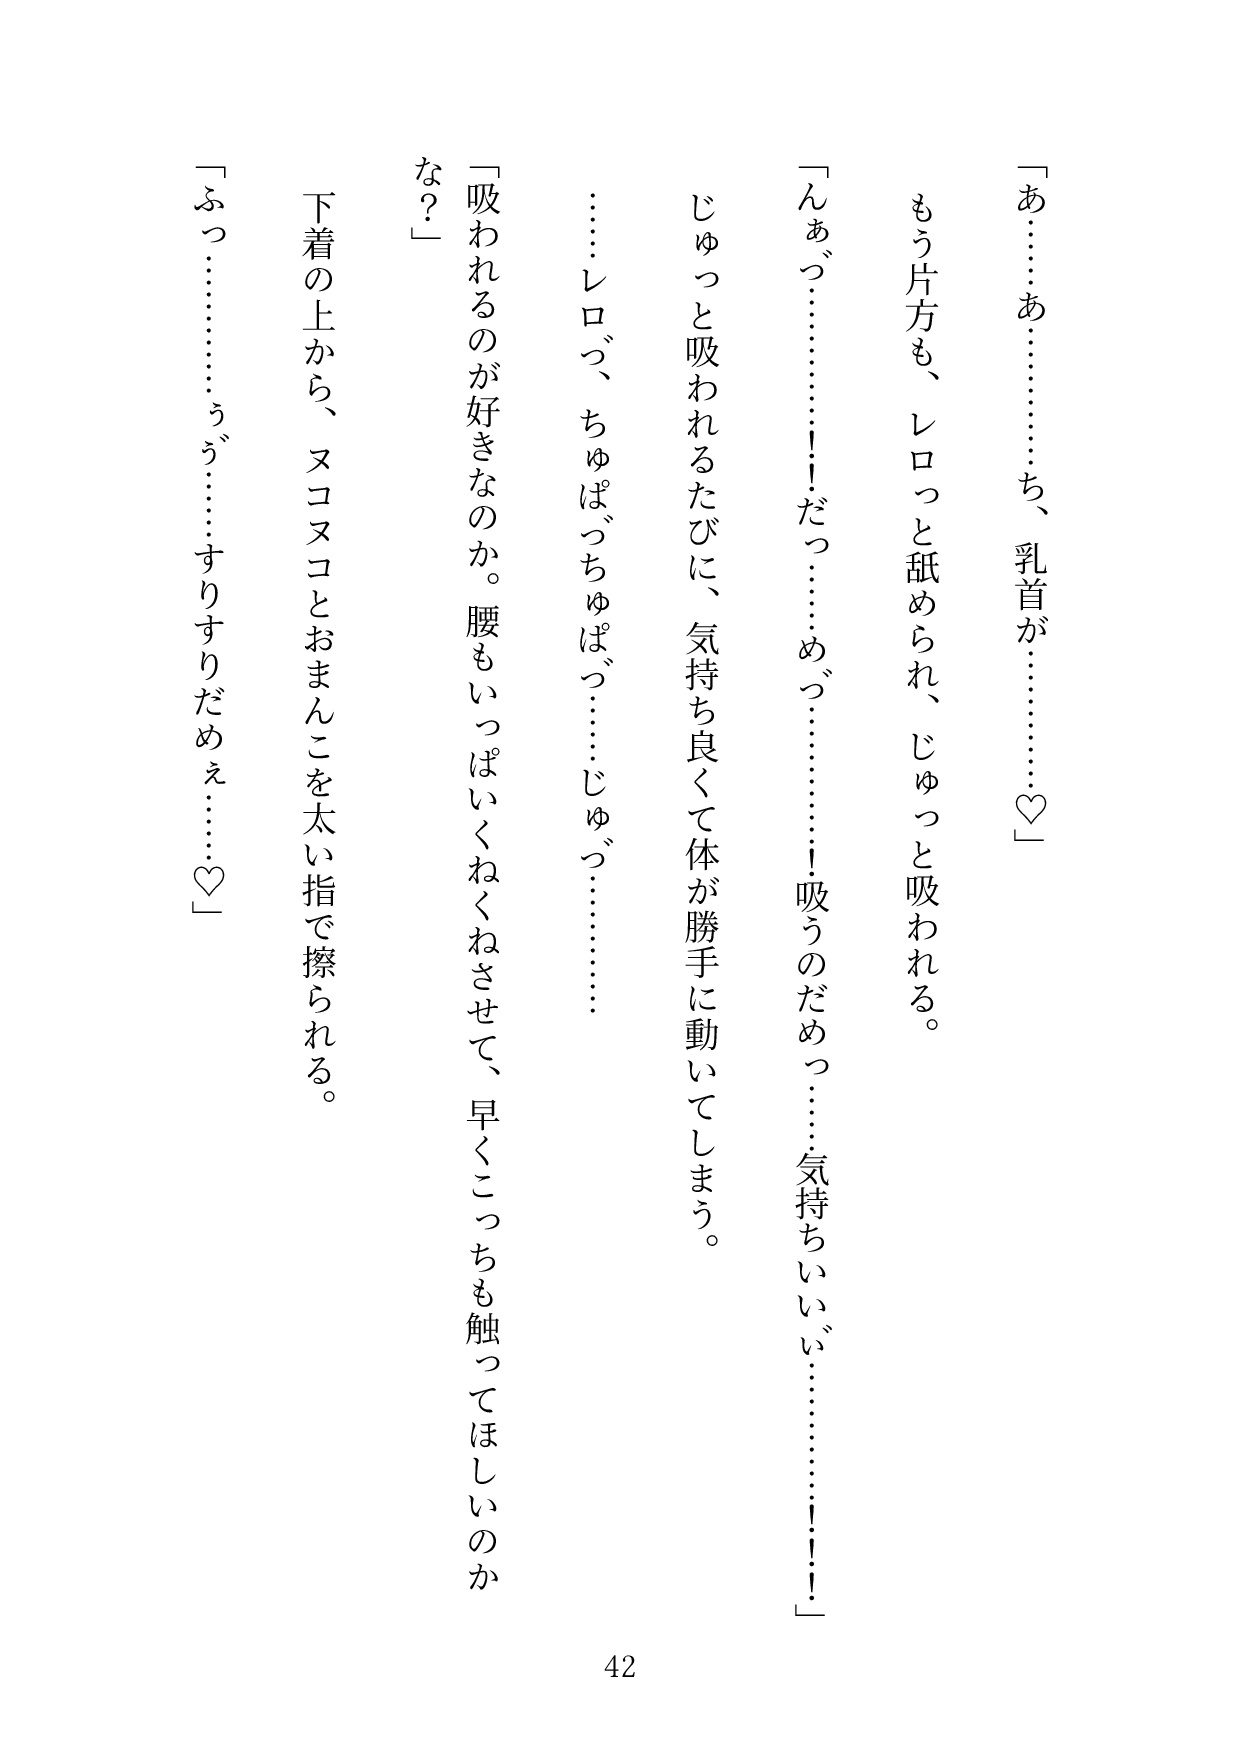 「あ……あ…………ち、乳首が…………♡」
もう片方も、レロっと舐められ、じゅっと吸われる。
「んぁっ゛…………！！だっ……めっ゛…………！吸うのだめっ……気持ちいいぃ゛…………！！！」
じゅっと吸われるたびに、気持ち良くて体が勝手に動いてしまう。
……レロっ゛、ちゅぱっ゛ちゅぱっ゛……じゅっ゛…………
「吸われるのが好きなのか。腰もいっぱいくねくねさせて、早くこっちも触ってほしいのか
な？」
下着の上から、ヌコヌコとおまんこを太い指で擦られる。
「ふっ…………ぅぅ゛……すりすりだめぇ……♡」
42